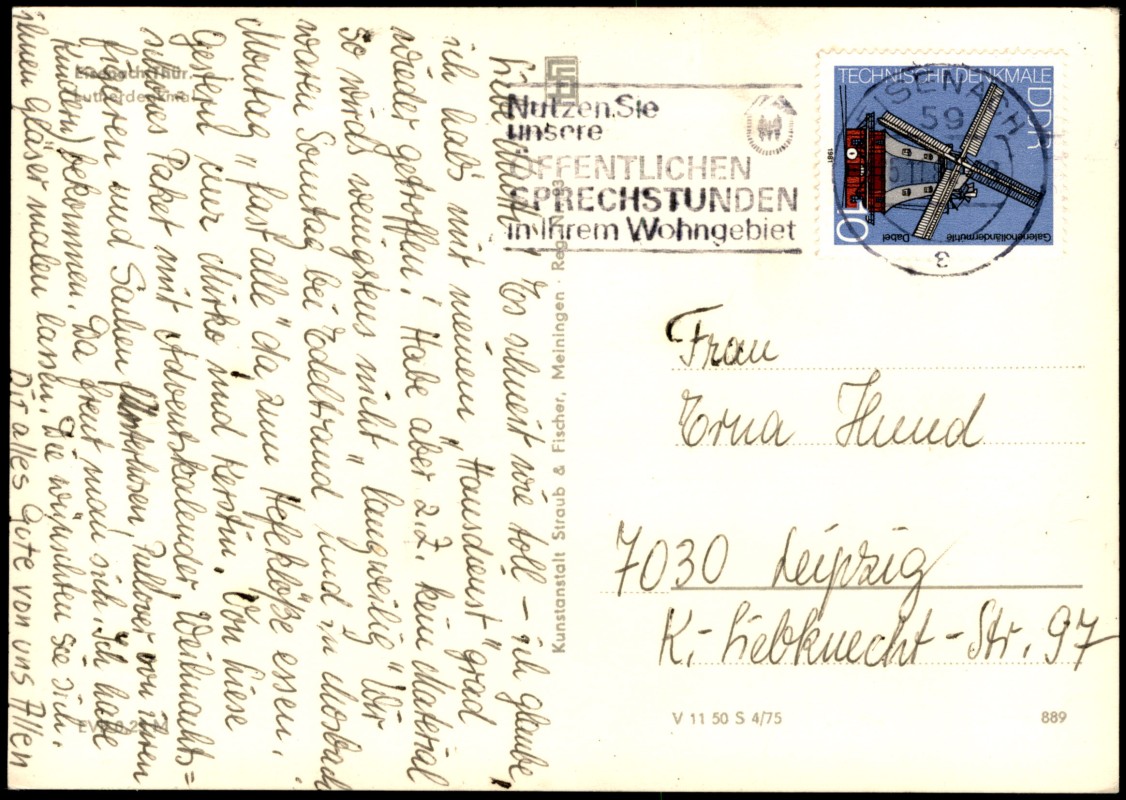 Eisenach/Thür.
Lutherdenkmal
Liebe Mutti! Es schneit wie toll – ich glaube,
ich hab's mit meinem "Hausdienst" grad
wieder getroffen! Habe aber z.Z. kein Material
so wird's wenigstens nicht "langweilig". Wir
waren Sonntag bei Edeltraud und in Mosbach
Montag "fast alle" da zum Hefeklöße essen.
Gestern nur Mirko und Kerstin. Von Liese
liebes Paket mit Adventskalender Weihnachts=
und Sachen Unterhosen, Pullover von ihren
Kunden) bekommen. Da freut man sich. Ich habe
ihnen Gläser malen lassen. Die wünschten sie sich.
Dir alles Gute von uns Allen
EVP 0,20 M
Kunstanstalt Straub & Fischer, Meiningen · Reg.
Nutzen Sie
unsere
ÖFFENTLICHEN
SPRECHSTUNDEN
in Ihrem Wohngebiet
TECHNISCHE DENKMALE
DDR
1981
10
Galerieholländermühle
Dabel
EISENACH
59
3
Frau
Erna Hund
7030 Leipzig
K.-Liebknecht-Str. 97
V 11 50 S 4/75
889